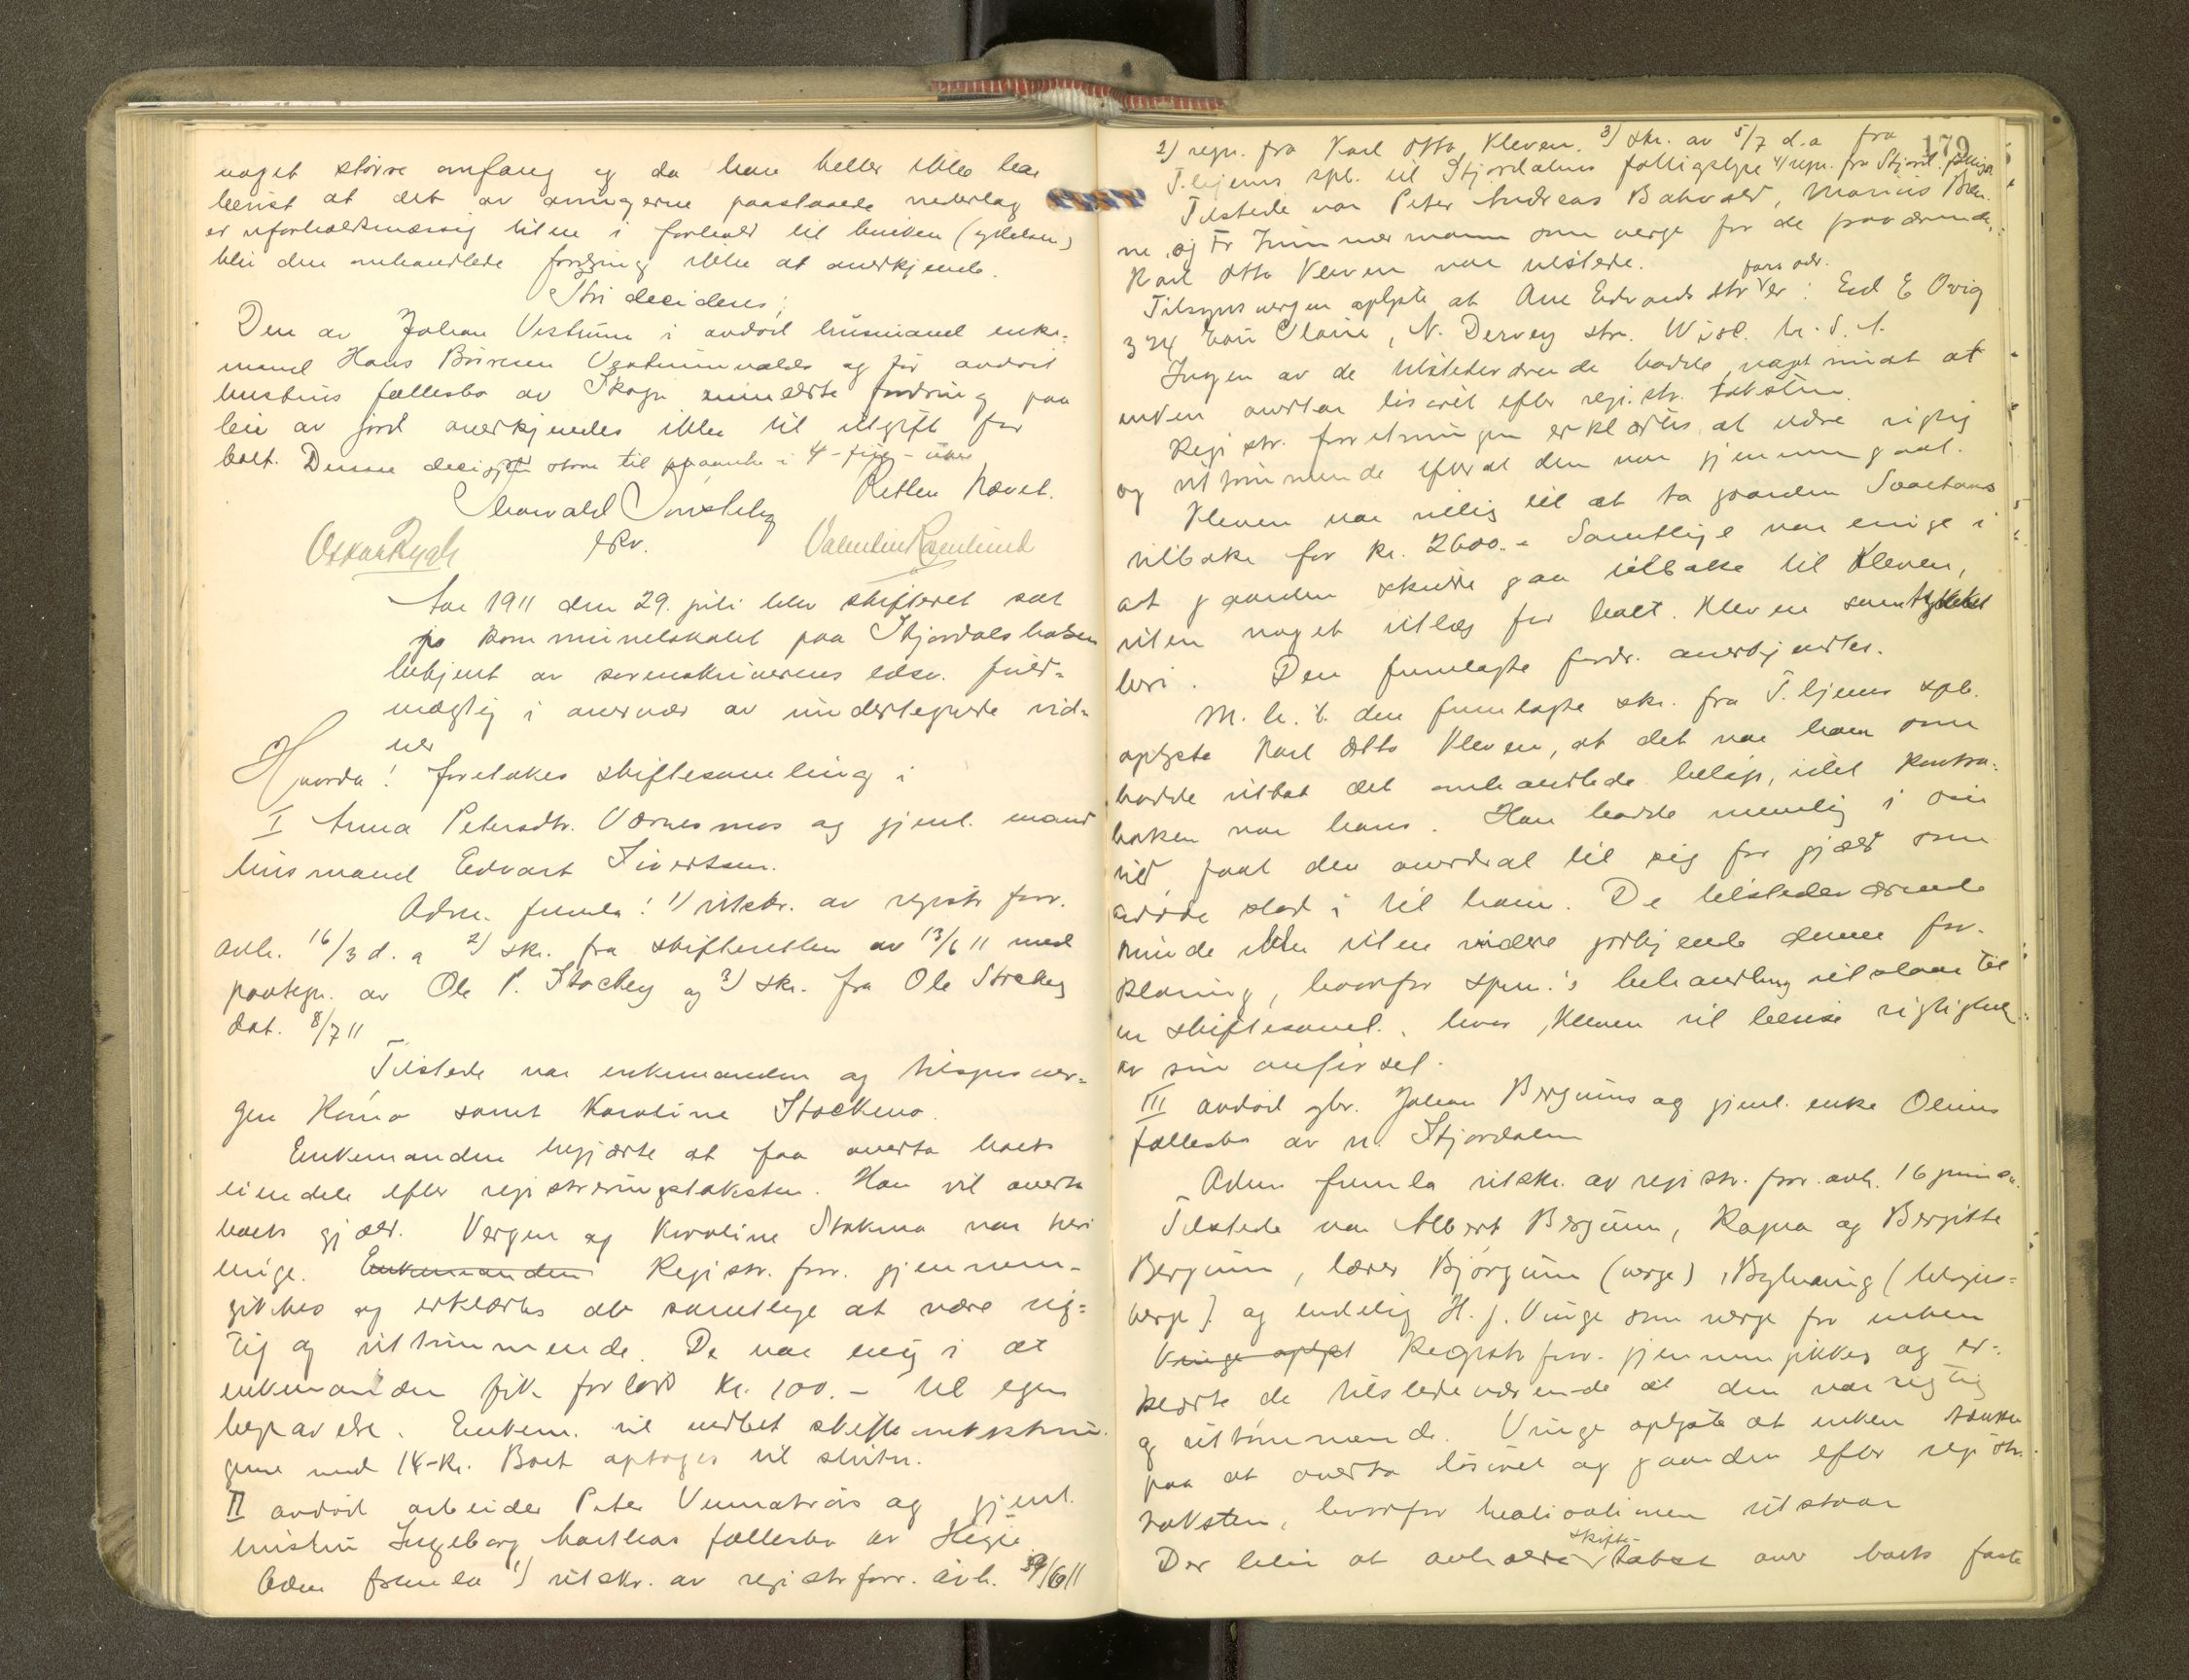 noget større omfang og da han heller ikke har
bevist at det av arvingerne paastaaede nederlag
er uforholdsmæssig litne i forhold til bruken (ydelsen)
blir den omhandlede fordring ikke at anerkjende.
Thi decideres;
Den av Johan Vestrum i avdød husmand enke-
mand Hans Vestrumvalds og før avdød
hustrus fællesbo av Skogn anmeldte fordring paa
leie av jord anerkjendes ikke til utgift for
boet. Denne decision staar til paaanke i 4-fire-uker
Retten hævet.
Oskar Rygh
Aar 1911 den 29. juli blev skifteret sat
paa kommunelokalet paa Stjørdalshalsen
betjent av sorenskriverens edsv. fuld-
mægtig i overvær av undertegnede vid-
ner
Hvorda! foretokes skiftesamling i
I Anna Petersdtr. Værnesmo og gjenl. mand
husmand Edvart Sivertsen.
Adm. freml.! 1) utskr. av registr. forr.
avh. 16/3 d. a 2) skr. fra skifteretten av 13/6 11 med
paategn. av Ole P. Stockey og 3) skr. fra Ole Stockey
dat. 8/7 11
Tilstede var enkemanden og tilsynsver-
gen samt Karoline Stockmo.
Enkemanden begjærte at faa overta boets
eiendele efter registreringstaksten. Han vil overta
boets gjæld. Vergen og Karoline Stokmo var heri
enige. Enkemanden Registr. forr. gjennem-
gikkes og erklærtes av samtlige at være rig-
tig og uttømmende. De var enig i at
enkemanden fik forlods kr. 100.- til egen
begravelse. Enkem. vil
med 14-kr. Boet optoges til slutn.
II avdød arbeider Peter og gjenl.
hustru Ingeborg Marthas fællesbo av Hegra
Adm fremla 1) utskr. av registrforr. avh. /6 11
179
2) regn. fra Karl Otto Kleven. 3) skr. av 5/7 d.a fra
T.hjems spb. til Stjørdalens fattigstyre 4) regn. fra Stjørd. fattigv.
Tilstede var Peter Andreas Bakvold, Marius
ne, og Fr Zimmermann som verge for de fraværende,
Karl Otto Kleven var tilstede.
fars adr.
Tilsynsvergen oplyste at Ane Edvards dtr er: End E Ovig
324 Eau Claire, N. Dervey str. Wisc. U. S. A.
Ingen av de tilstedeværende hadde noget imot at
enken overtar løsøret efter registr. taksten.
Registr. forretningen erklærtes at være rigtig
og uttømmende efterat den var gjennemgaat.
Kleven var villig til at ta gaarden
tilbake for kr. 2600.- Samtlige var enige i
at gaarden skulde gaa tilbake til Kleven,
uten noget utlæg for boet. Kleven samtykket
heri. Den fremlagte fordr. anerkjendtes.
M. h. t. den fremlagte skr. fra T.hjems spb.
oplyste Karl Otto Kleven, at det var ham som
hadde uttat det omhandlede beløp, idet kontra-
boken var hans. Han hadde nemlig i sin
tid faat den overdrat til sig for gjæld som
avdøde stod i til ham. De tilstedeværende
kunde ikke uten videre godkjende denne for-
klaring, hvorfor spm.'s behandling utstaar til
en skiftesaml., hvor Kleven vil bevise rigtighet
av sin anførsel.
III avdød gbr. Johan Bergums og gjenl. enke Olines
fællesbo av n. Stjørdalen
Adm fremla utskr. av registr. forr. avh. 16 juni
Tilstede var Albert Bergum, Ragna og Bergitte
Bergum, lærer Bjørgum (verge), (tilsyns-
verge) og endelig H. J. Vinge som verge for enken
Vinge oplyst Registr forr. gjennemgikkes og er-
klærte de tilstedeværende at den var rigtig
og uttømmende. Vinge oplyste at enken tænker
paa at overta løsøret og gaarden efter registr.
taksten, hvorfor realisationen utstaar
skifte-
Der blir at avholde takst over boets faste